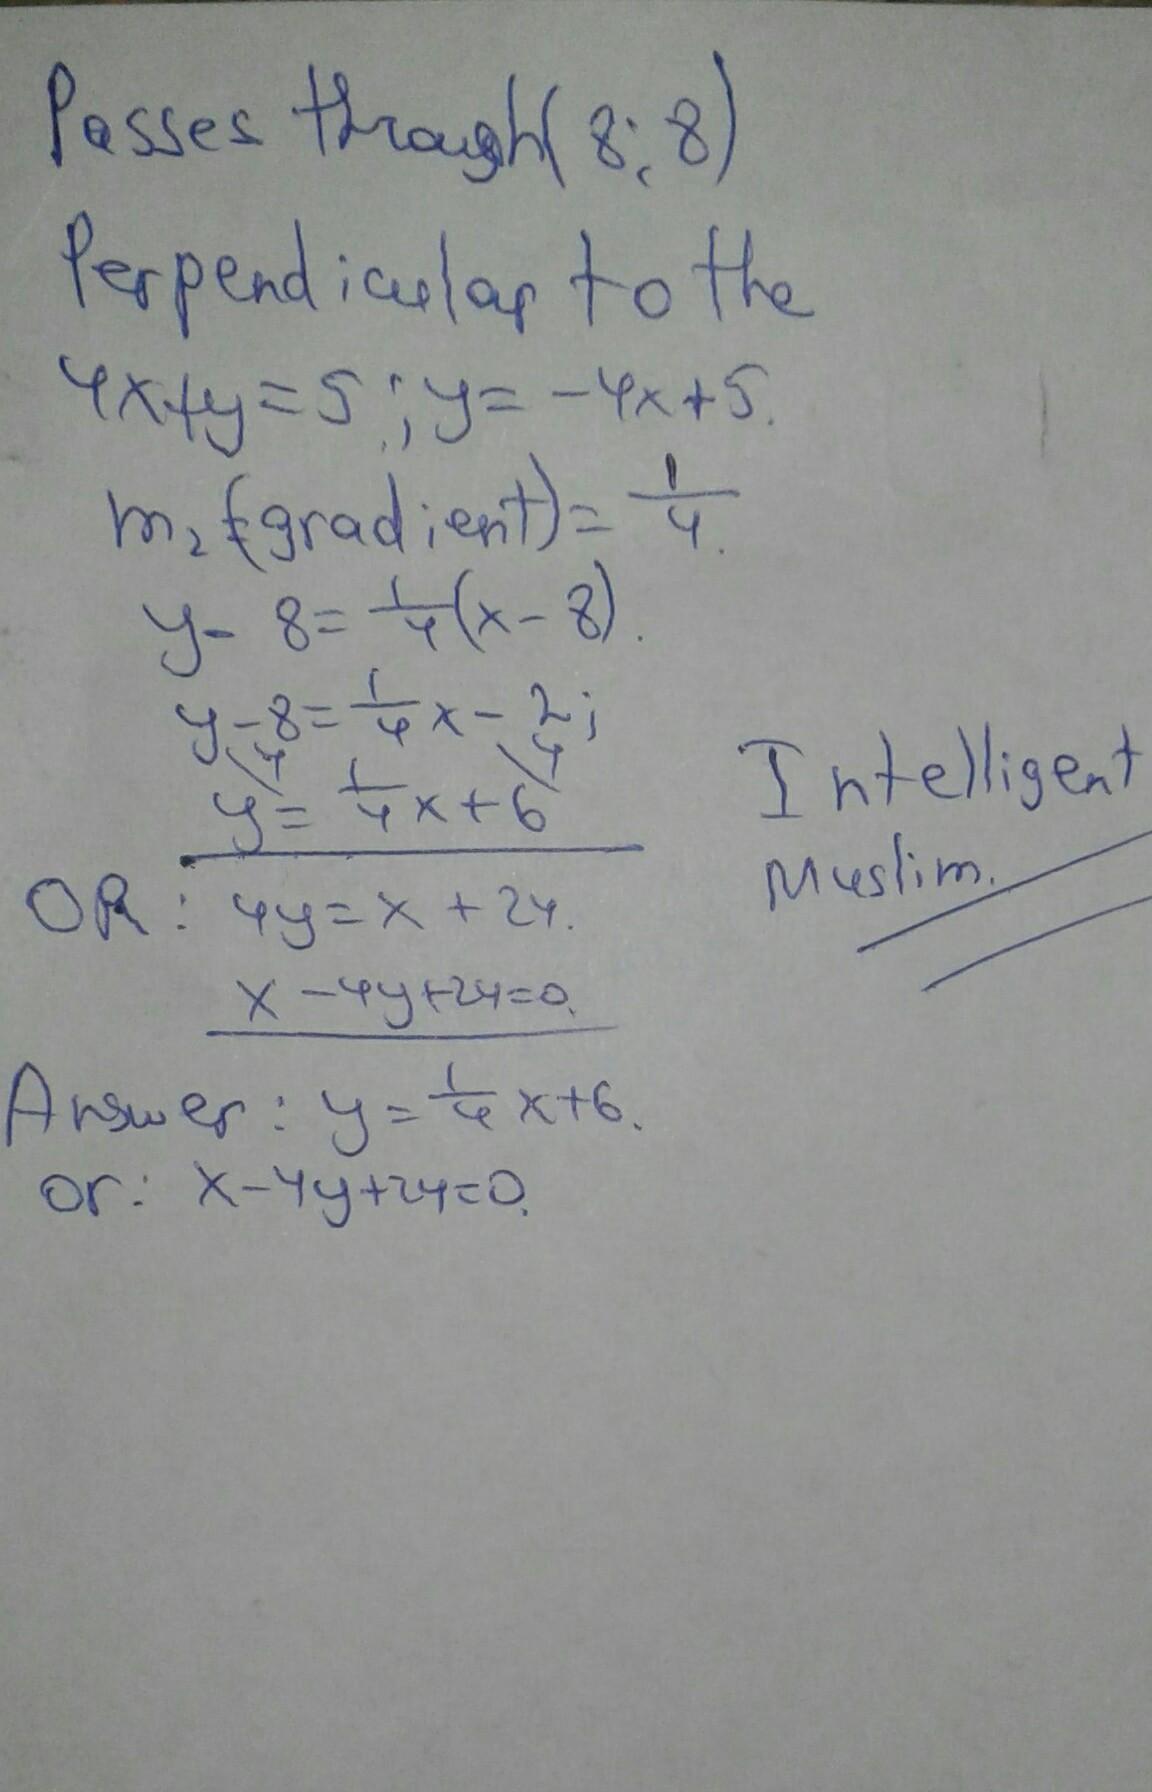 Passes through (8; 8)
Perpendicular to the
4x+y=5; y= -4x+5.
m₂ (gradient) = 1/4.
y- 8= 1/4(x- 8).
y-8= 1/4 x- 2;
4 4
y= 1/4 x+6
Intelligent
Muslim.
OR: 4y=x+24.
x-4y+24=0.
Answer: y= 1/4 x+6.
or: x-4y+24=0.